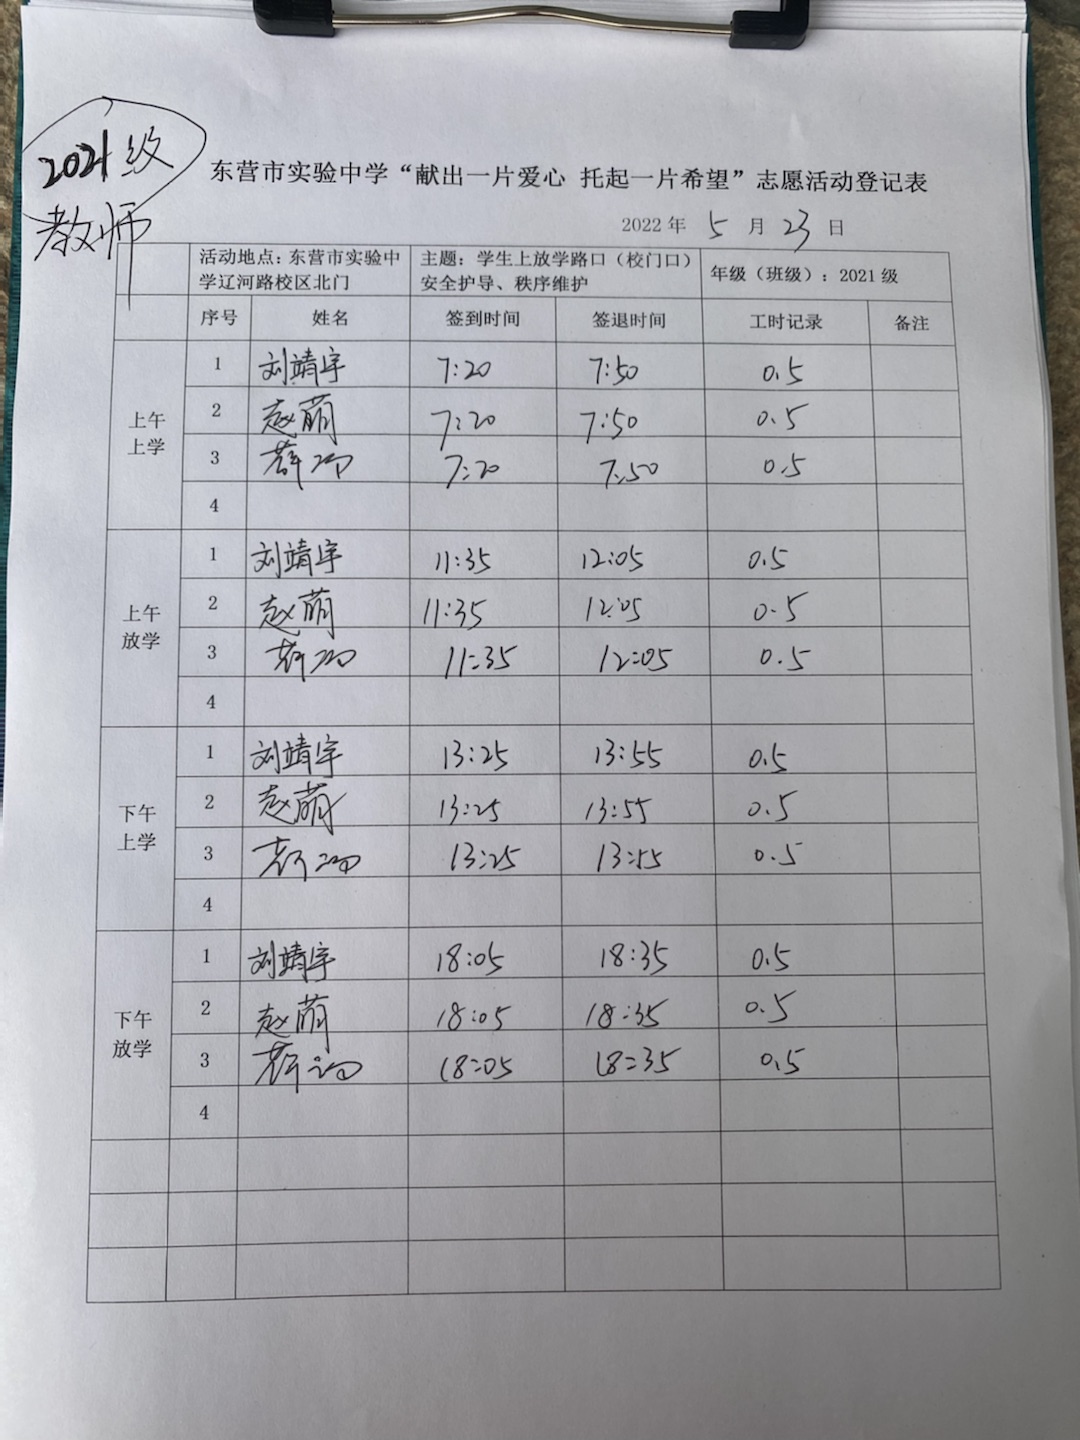 2021级
教师
东营市实验中学“献出一片爱心 托起一片希望”志愿活动登记表
2022年 5 月 23 日
活动地点：东营市实验中学辽河路校区北门 主题：学生上放学路口（校门口）安全护导、秩序维护 年级（班级）：2021级
序号 姓名 签到时间 签退时间 工时记录 备注
上午上学
1 刘靖宇 7:20 7:50 0.5
2 赵萌 7:20 7:50 0.5
3 7:20 7:50 0.5
4
上午放学
1 刘靖宇 11:35 12:05 0.5
2 赵萌 11:35 12:05 0.5
3 11:35 12:05 0.5
4
下午上学
1 刘靖宇 13:25 13:55 0.5
2 赵萌 13:25 13:55 0.5
3 13:25 13:55 0.5
4
下午放学
1 刘靖宇 18:05 18:35 0.5
2 赵萌 18:05 18:35 0.5
3 18:05 18:35 0.5
4